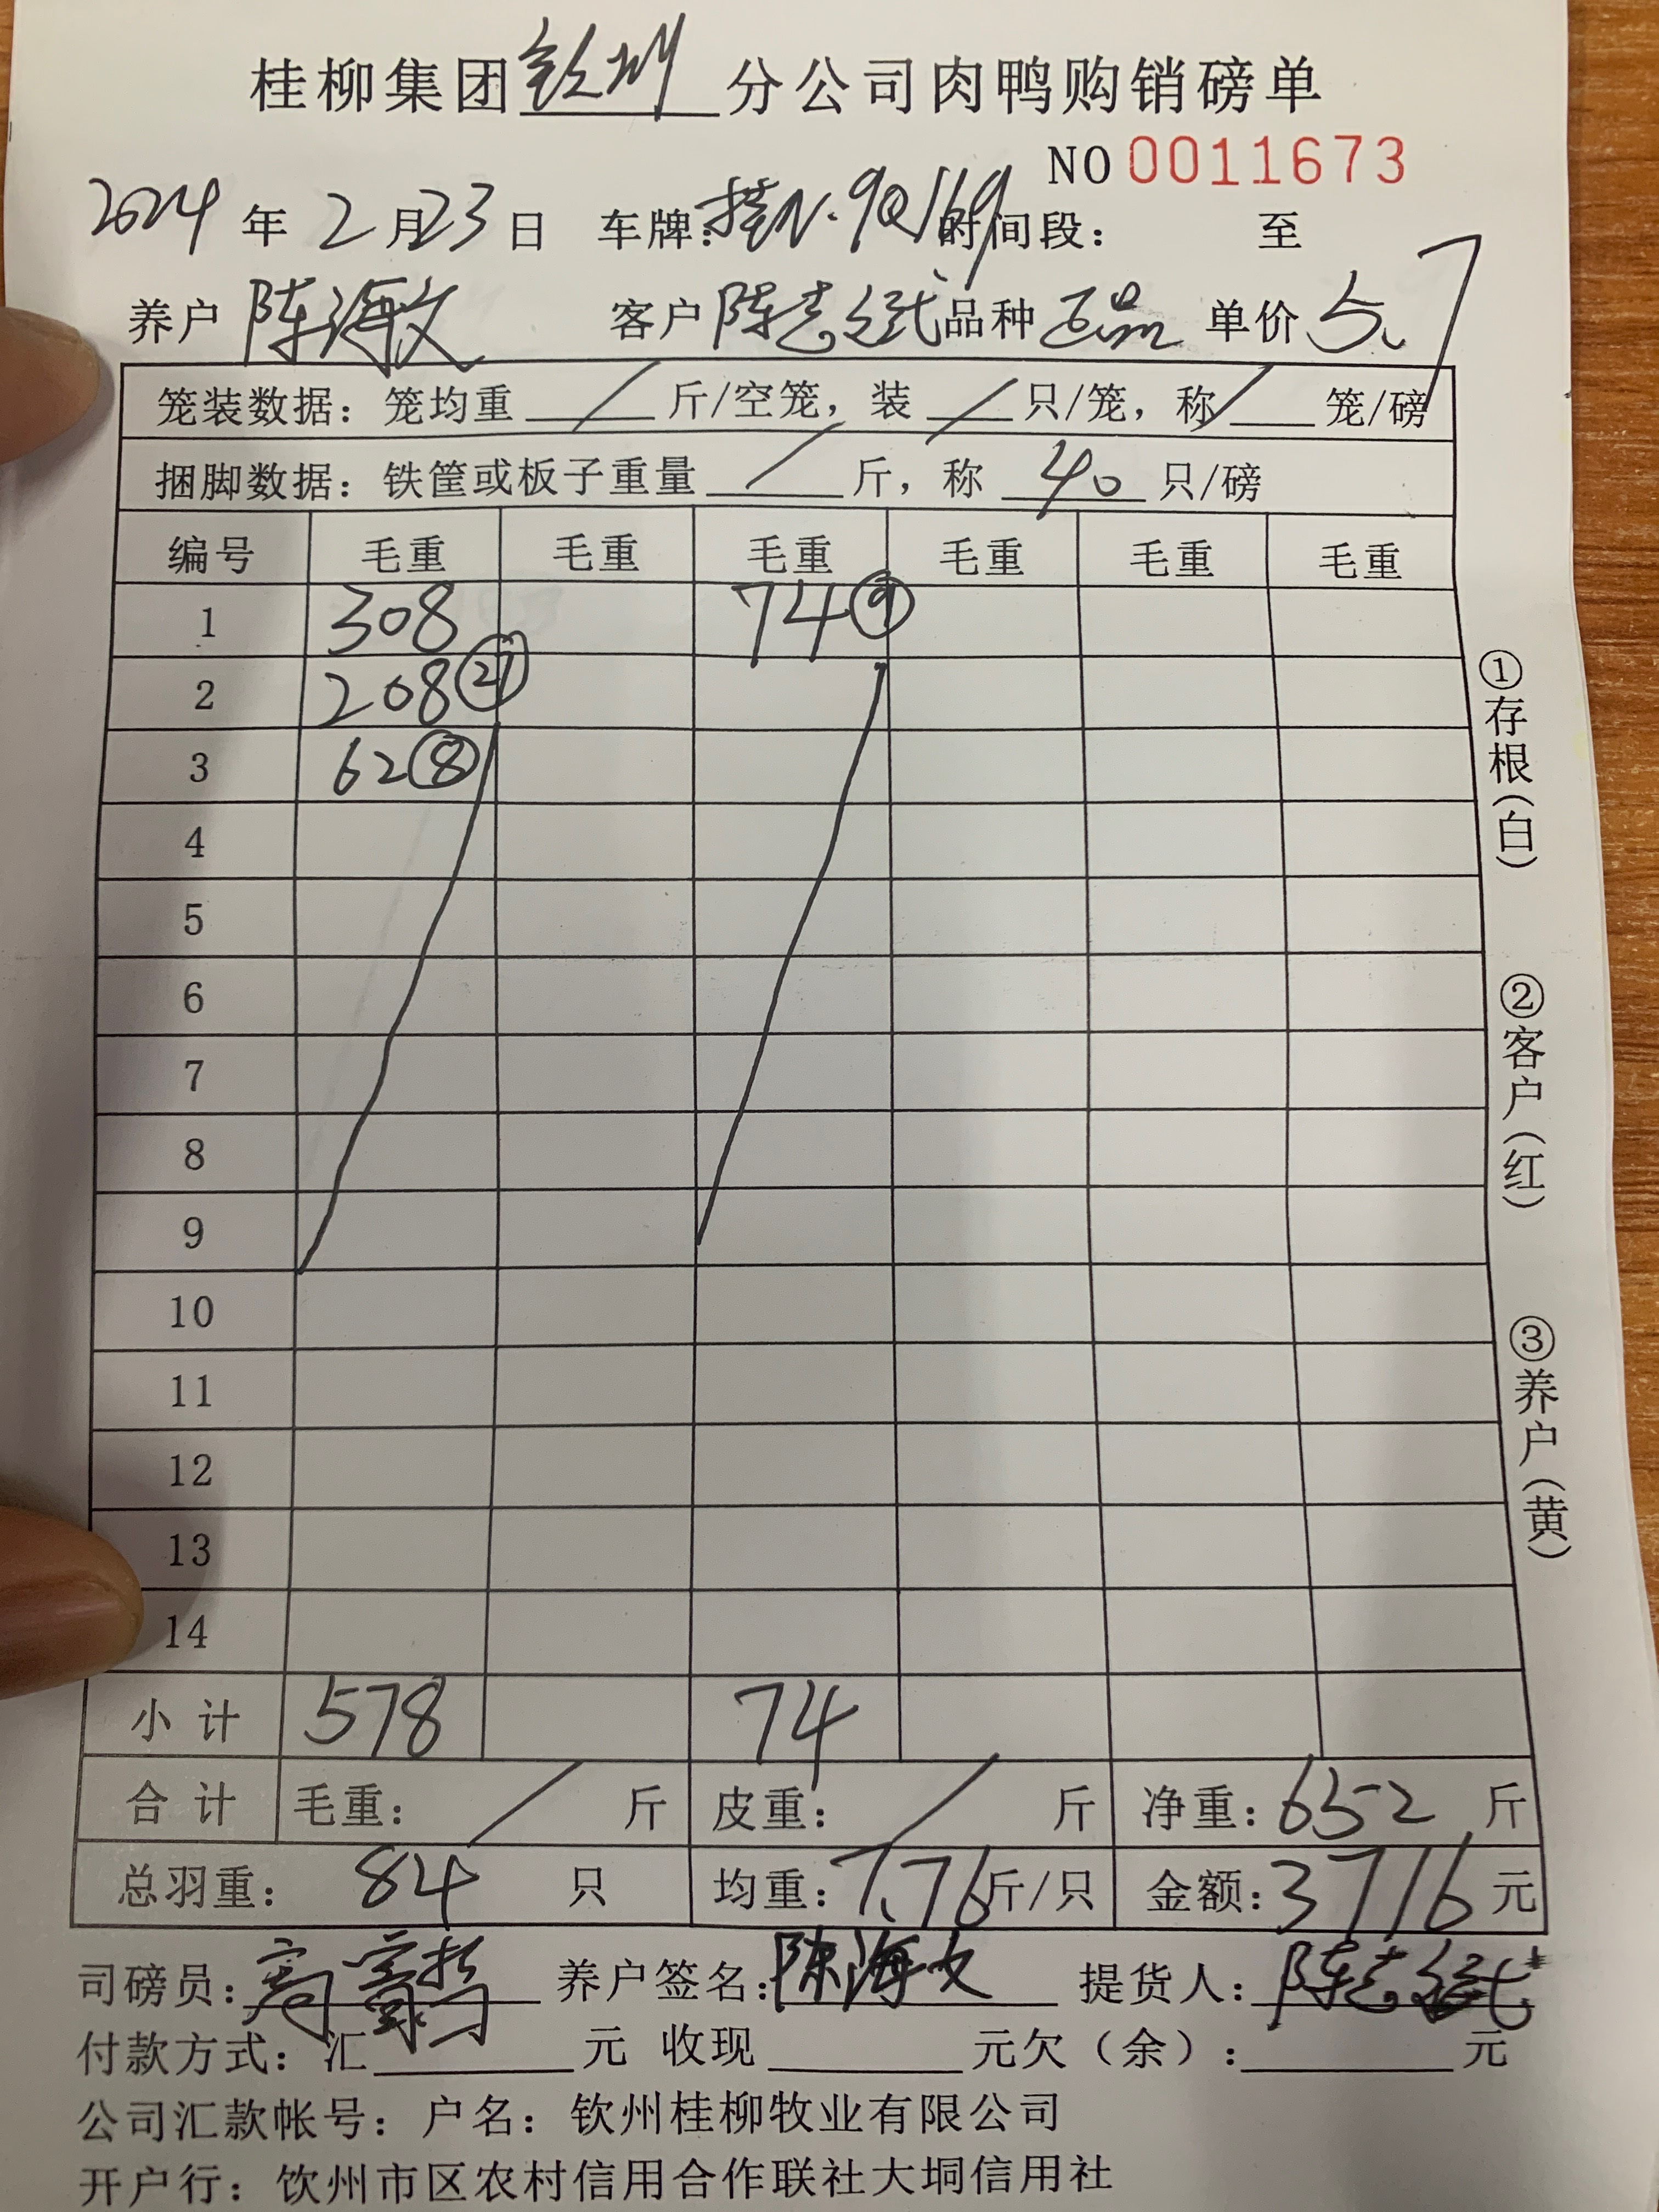 桂柳集团钦州分公司肉鸭购销磅单
NO 0011673
2024年2月23日 车牌:桂N·9Q169 时间段: 至
养户 陈海文 客户 陈志 品种 正品 单价 5.7
笼装数据: 笼均重 / 斤/空笼, 装 / 只/笼, 称 / 笼/磅
捆脚数据: 铁筐或板子重量 / 斤, 称 40 只/磅
编号 毛重 毛重 毛重 毛重 毛重 毛重
1 308 74⑨
2 208㉗
3 62⑧
4
5
6
7
8
9
10
11
12
13
14
小计 578 74
合计 毛重: / 斤 皮重: / 斤 净重: 652 斤
总羽重: 84 只 均重: 7.76 斤/只 金额: 3716 元
司磅员: 养户签名: 陈海文 提货人: 陈志
付款方式: 汇 元 收现 元欠(余): 元
公司汇款帐号: 户名: 钦州桂柳牧业有限公司
开户行: 钦州市区农村信用合作联社大垌信用社
①存根(白)
②客户(红)
③养户(黄)